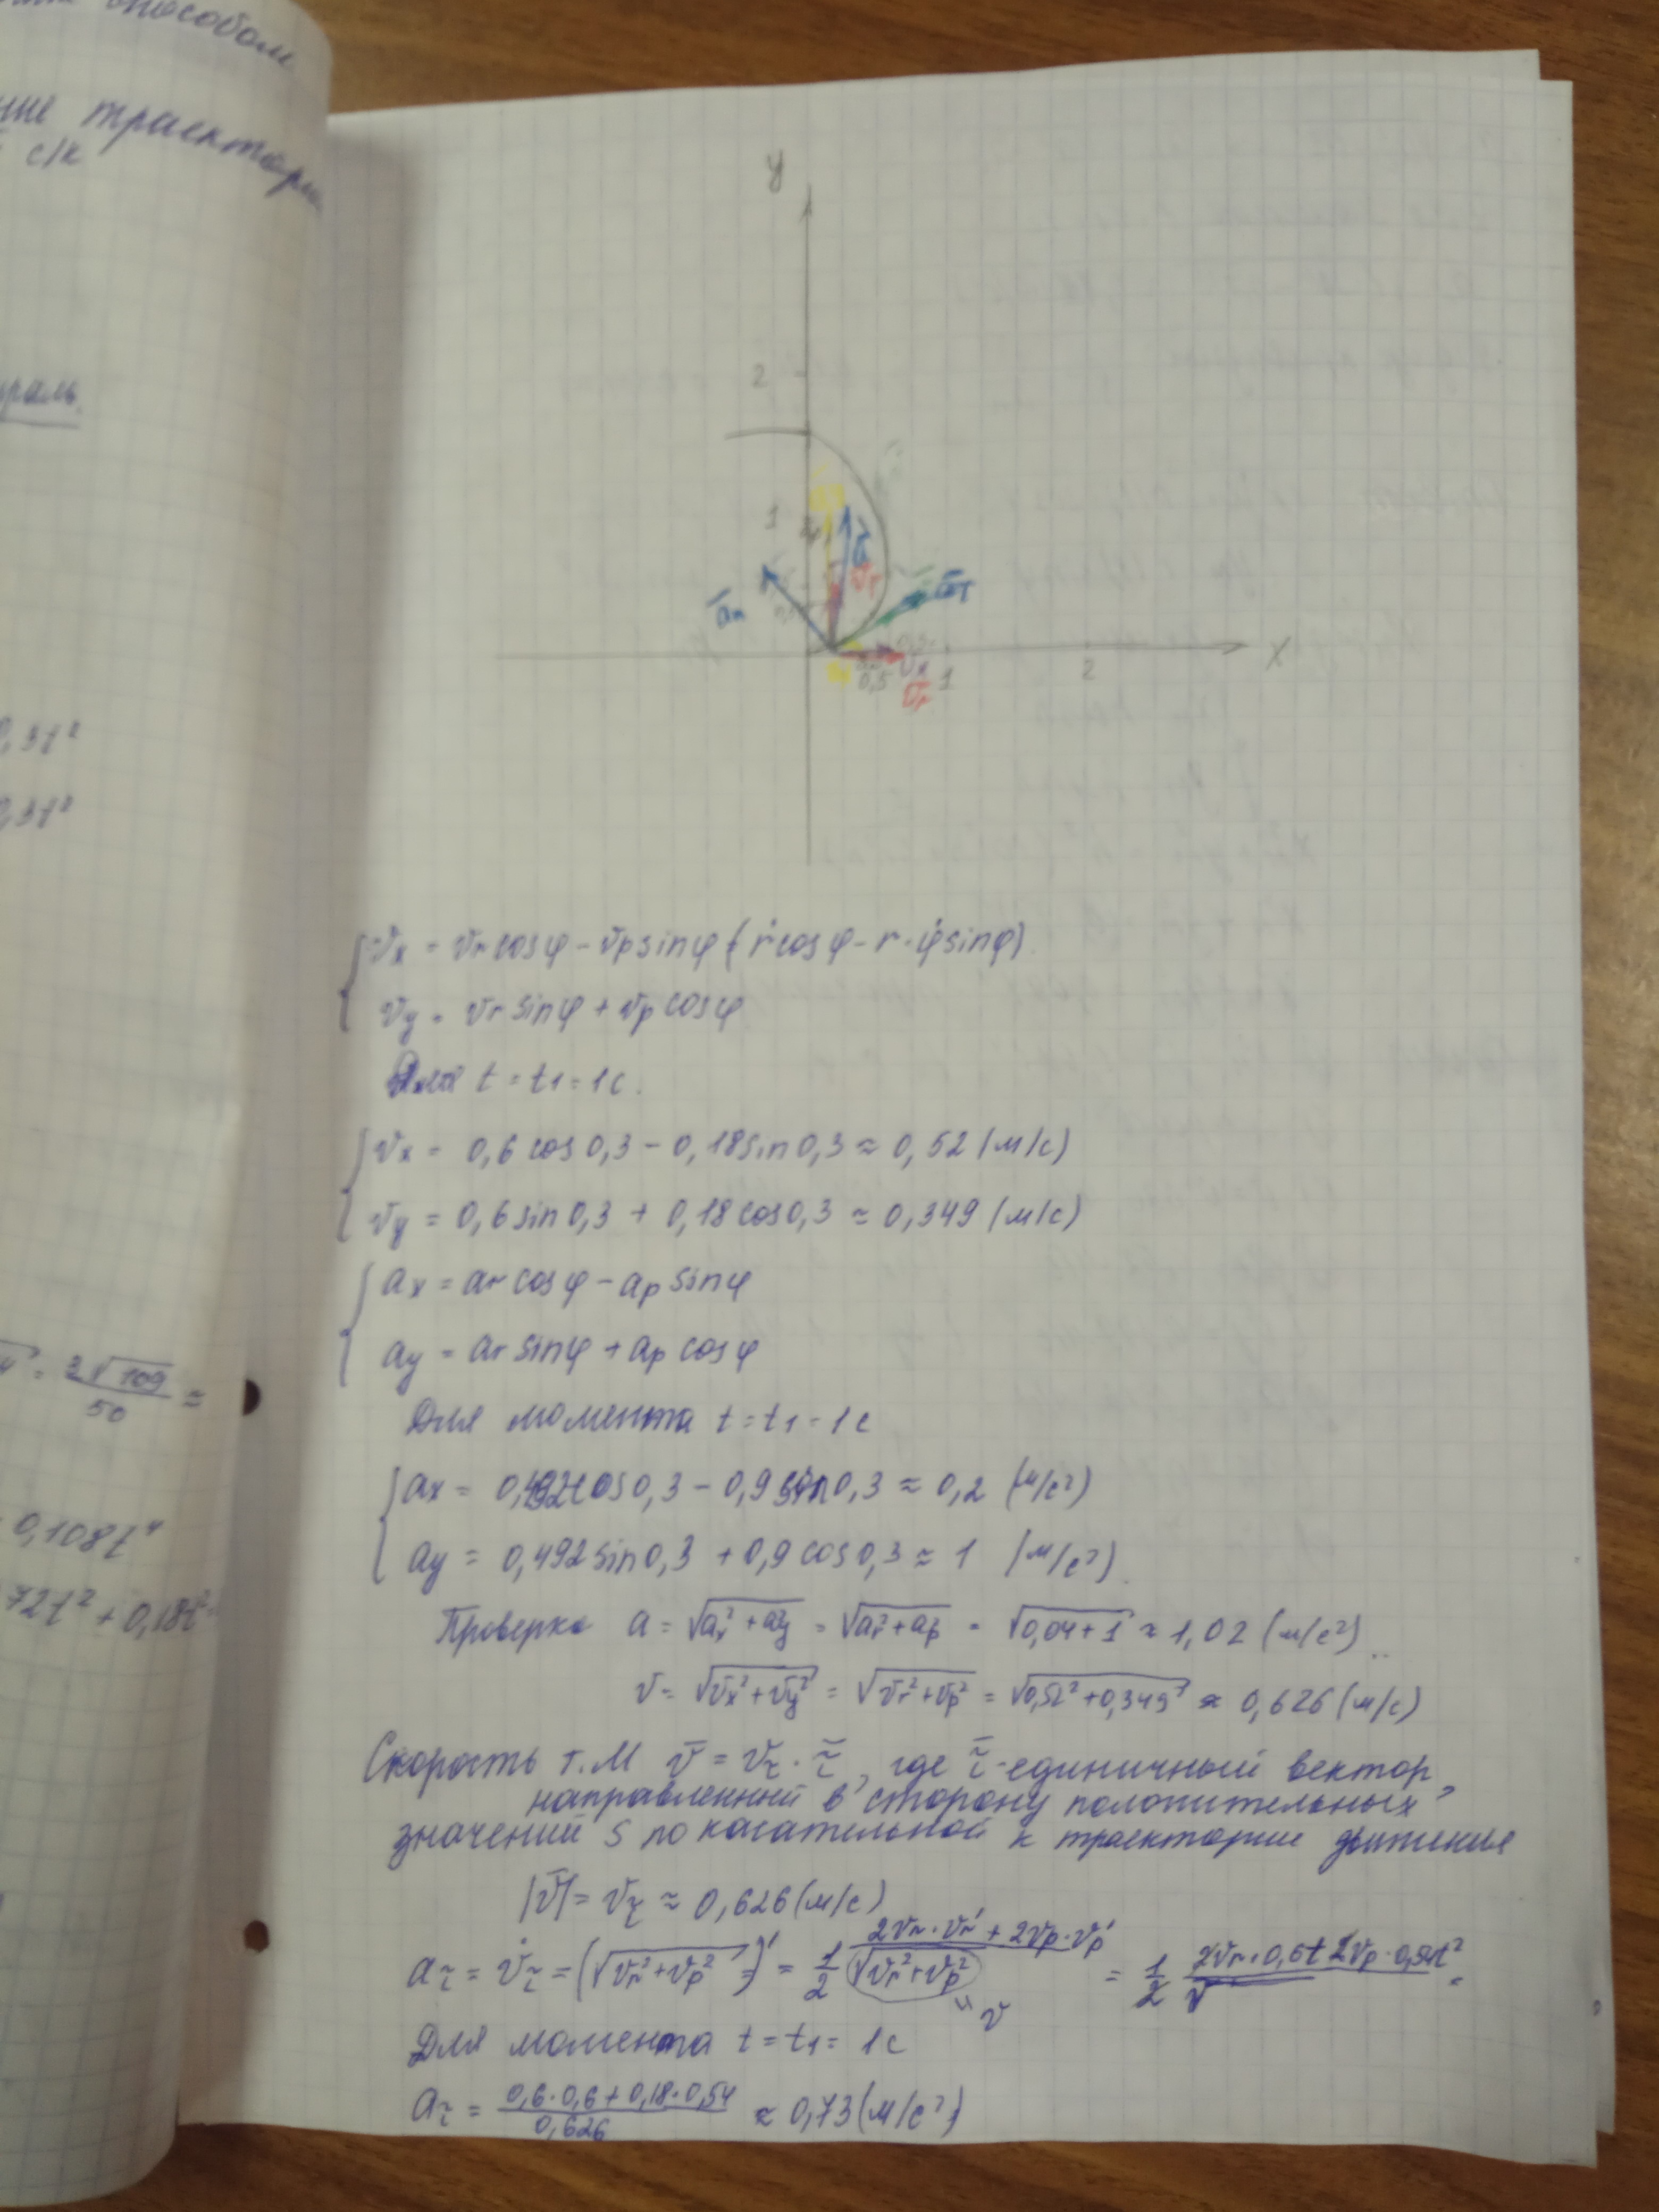 способом
траектори
с/к
0,3t²
0,3t²
= 3√109 / 50 ≈
0,108t⁴
72t² + 0,18t²
y
2
1
a̅
v̅p
a̅n
a̅τ
0,5
vx
0,5
1
2
x
v̅r
vx = vr cosφ − vp sinφ (ṙ cosφ − r·φ̇ sinφ)
vy = vr sinφ + vp cosφ
t = t1 = 1c.
vx = 0,6 cos 0,3 − 0,18 sin 0,3 ≈ 0,52 (м/с)
vy = 0,6 sin 0,3 + 0,18 cos 0,3 ≈ 0,349 (м/с)
ax = ar cosφ − ap sinφ
ay = ar sinφ + ap cosφ
Для момента t = t1 = 1c
ax = 0,492 cos 0,3 − 0,9 sin 0,3 ≈ 0,2 (м/с²)
ay = 0,492 sin 0,3 + 0,9 cos 0,3 ≈ 1 (м/с²).
Проверка a = √(ax² + ay²) = √(ar² + ap²) = √(0,04 + 1) ≈ 1,02 (м/с²)
v = √(vx² + vy²) = √(vr² + vp²) = √(0,52² + 0,349²) ≈ 0,626 (м/с)
Скорость т. М v̅ = vτ · τ̅, где τ̅ - единичный вектор,
направленный в сторону положительных
значений s по касательной к траектории движения
|v̅| = vτ ≈ 0,626 (м/с)
aτ = v̇τ = (√(vr² + vp²))' = 1/2 (2vr · vr' + 2vp · vp') / √(vr² + vp²) = 1/2
v
Для момента t = t1 = 1c
aτ = (0,6 · 0,6 + 0,18 · 0,54) / 0,626 ≈ 0,73 (м/с²)